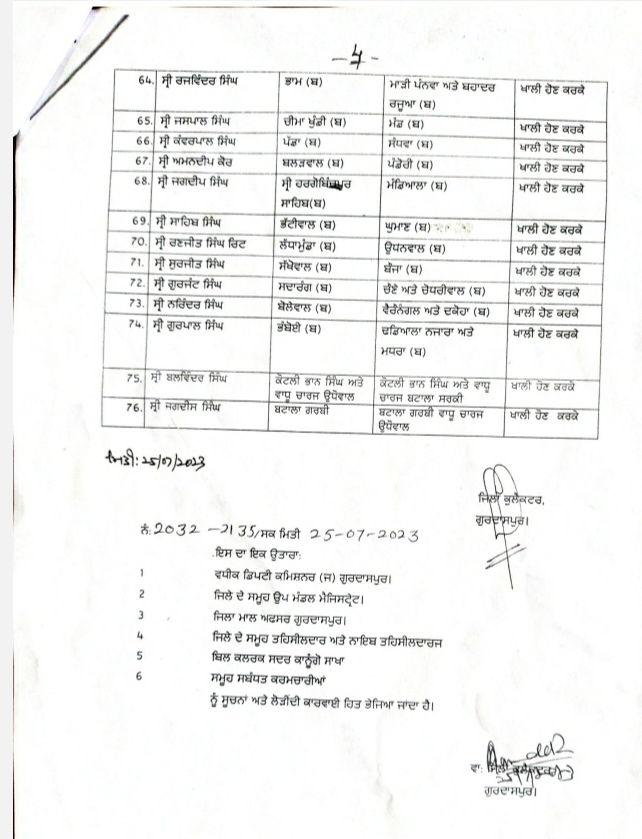 -4-
64. ਸ੍ਰੀ ਰਜਵਿੰਦਰ ਸਿੰਘ ਭਾਮ (ਬ) ਮਾੜੀ ਪੰਨਵਾ ਅਤੇ ਬਹਾਦਰ ਖਾਲੀ ਹੋਣ ਕਰਕੇ
ਰਜੂਆ (ਬ)
65. ਸ੍ਰੀ ਜਸਪਾਲ ਸਿੰਘ ਚੀਮਾ ਖੁੱਡੀ (ਬ) ਮੰਡ (ਬ) ਖਾਲੀ ਹੋਣ ਕਰਕੇ
66. ਸ੍ਰੀ ਕੰਵਰਪਾਲ ਸਿੰਘ ਪੱਡਾ (ਬ) ਸੰਧਵਾ (ਬ) ਖਾਲੀ ਹੋਣ ਕਰਕੇ
67. ਸ੍ਰੀ ਅਮਨਦੀਪ ਕੋਰ ਬਲੜਵਾਲ (ਬ) ਪੰਡੋਰੀ (ਬ) ਖਾਲੀ ਹੋਣ ਕਰਕੇ
68. ਸ੍ਰੀ ਜਗਦੀਪ ਸਿੰਘ ਸ੍ਰੀ ਹਰਗੋਬਿੰਦਪੁਰ ਮੰਡਿਆਲਾ (ਬ) ਖਾਲੀ ਹੋਣ ਕਰਕੇ
ਸਾਹਿਬ(ਬ)
69. ਸ੍ਰੀ ਸਾਹਿਬ ਸਿੰਘ ਭੱਟੀਵਾਲ (ਬ) ਘੁਮਾਣ (ਬ) ਖਾਲੀ ਹੋਣ ਕਰਕੇ
70. ਸ੍ਰੀ ਰਣਜੀਤ ਸਿੰਘ ਰਿਟ ਲੱਧਾਮੁੰਡਾ (ਬ) ਉਧਨਵਾਲ (ਬ) ਖਾਲੀ ਹੋਣ ਕਰਕੇ
71. ਸ੍ਰੀ ਸੁਰਜੀਤ ਸਿੰਘ ਸੱਖੋਵਾਲ (ਬ) ਬੰਜਾ (ਬ) ਖਾਲੀ ਹੋਣ ਕਰਕੇ
72. ਸ੍ਰੀ ਗੁਰਜੰਟ ਸਿੰਘ ਸਦਾਰੰਗ (ਬ) ਚੋਣੇ ਅਤੇ ਚੋਧਰੀਵਾਲ (ਬ) ਖਾਲੀ ਹੋਣ ਕਰਕੇ
73. ਸ੍ਰੀ ਨਰਿੰਦਰ ਸਿੰਘ ਬੋਲੇਵਾਲ (ਬ) ਵੈਰੋਨੰਗਲ ਅਤੇ ਦਕੋਹਾ (ਬ) ਖਾਲੀ ਹੋਣ ਕਰਕੇ
74. ਸ੍ਰੀ ਗੁਰਪਾਲ ਸਿੰਘ ਭੰਬੋਈ (ਬ) ਢਡਿਆਲਾ ਨਜਾਰਾ ਅਤੇ ਖਾਲੀ ਹੋਣ ਕਰਕੇ
ਮਧਰਾ (ਬ)
75. ਸ੍ਰੀ ਬਲਵਿੰਦਰ ਸਿੰਘ ਕੋਟਲੀ ਭਾਨ ਸਿੰਘ ਅਤੇ ਕੋਟਲੀ ਭਾਨ ਸਿੰਘ ਅਤੇ ਵਾਧੂ ਖਾਲੀ ਹੋਣ ਕਰਕੇ
ਵਾਧੂ ਚਾਰਜ ਉਧੋਵਾਲ ਚਾਰਜ ਬਟਾਲਾ ਸਰਕੀ
76. ਸ੍ਰੀ ਜਗਦੀਸ ਸਿੰਘ ਬਟਾਲਾ ਗਰਬੀ ਬਟਾਲਾ ਗਰਬੀ ਵਾਧੂ ਚਾਰਜ ਖਾਲੀ ਹੋਣ ਕਰਕੇ
ਉਧੋਵਾਲ
ਮਿਤੀ: 25/07/2023
ਜਿਲ੍ਹਾ ਕੁਲੈਕਟਰ,
ਗੁਰਦਾਸਪੁਰ।
ਨੰ: 2032 -2135/ਸਕ ਮਿਤੀ 25-07-2023
ਇਸ ਦਾ ਇਕ ਉਤਾਰਾ:
1 ਵਧੀਕ ਡਿਪਟੀ ਕਮਿਸ਼ਨਰ (ਜ) ਗੁਰਦਾਸਪੁਰ।
2 ਜਿਲੇ ਦੇ ਸਮੂਹ ਉਪ ਮੰਡਲ ਮੈਜਿਸਟ੍ਰੇਟ।
3 ਜਿਲਾ ਮਾਲ ਅਫਸਰ ਗੁਰਦਾਸਪੁਰ।
4 ਜਿਲੇ ਦੇ ਸਮੂਹ ਤਹਿਸੀਲਦਾਰ ਅਤੇ ਨਾਇਬ ਤਹਿਸੀਲਦਾਰਜ
5 ਬਿਲ ਕਲਰਕ ਸਦਰ ਕਾਨੂੰਗੋ ਸਾਖਾ
6 ਸਮੂਹ ਸਬੰਧਤ ਕਰਮਚਾਰੀਆਂ
ਨੂੰ ਸੂਚਨਾਂ ਅਤੇ ਲੋੜੀਂਦੀ ਕਾਰਵਾਈ ਹਿਤ ਭੇਜਿਆ ਜਾਂਦਾ ਹੈ।
ਵਾ: ਜਿਲ੍ਹਾ ਕੁਲੈਕਟਰ
ਗੁਰਦਾਸਪੁਰ।